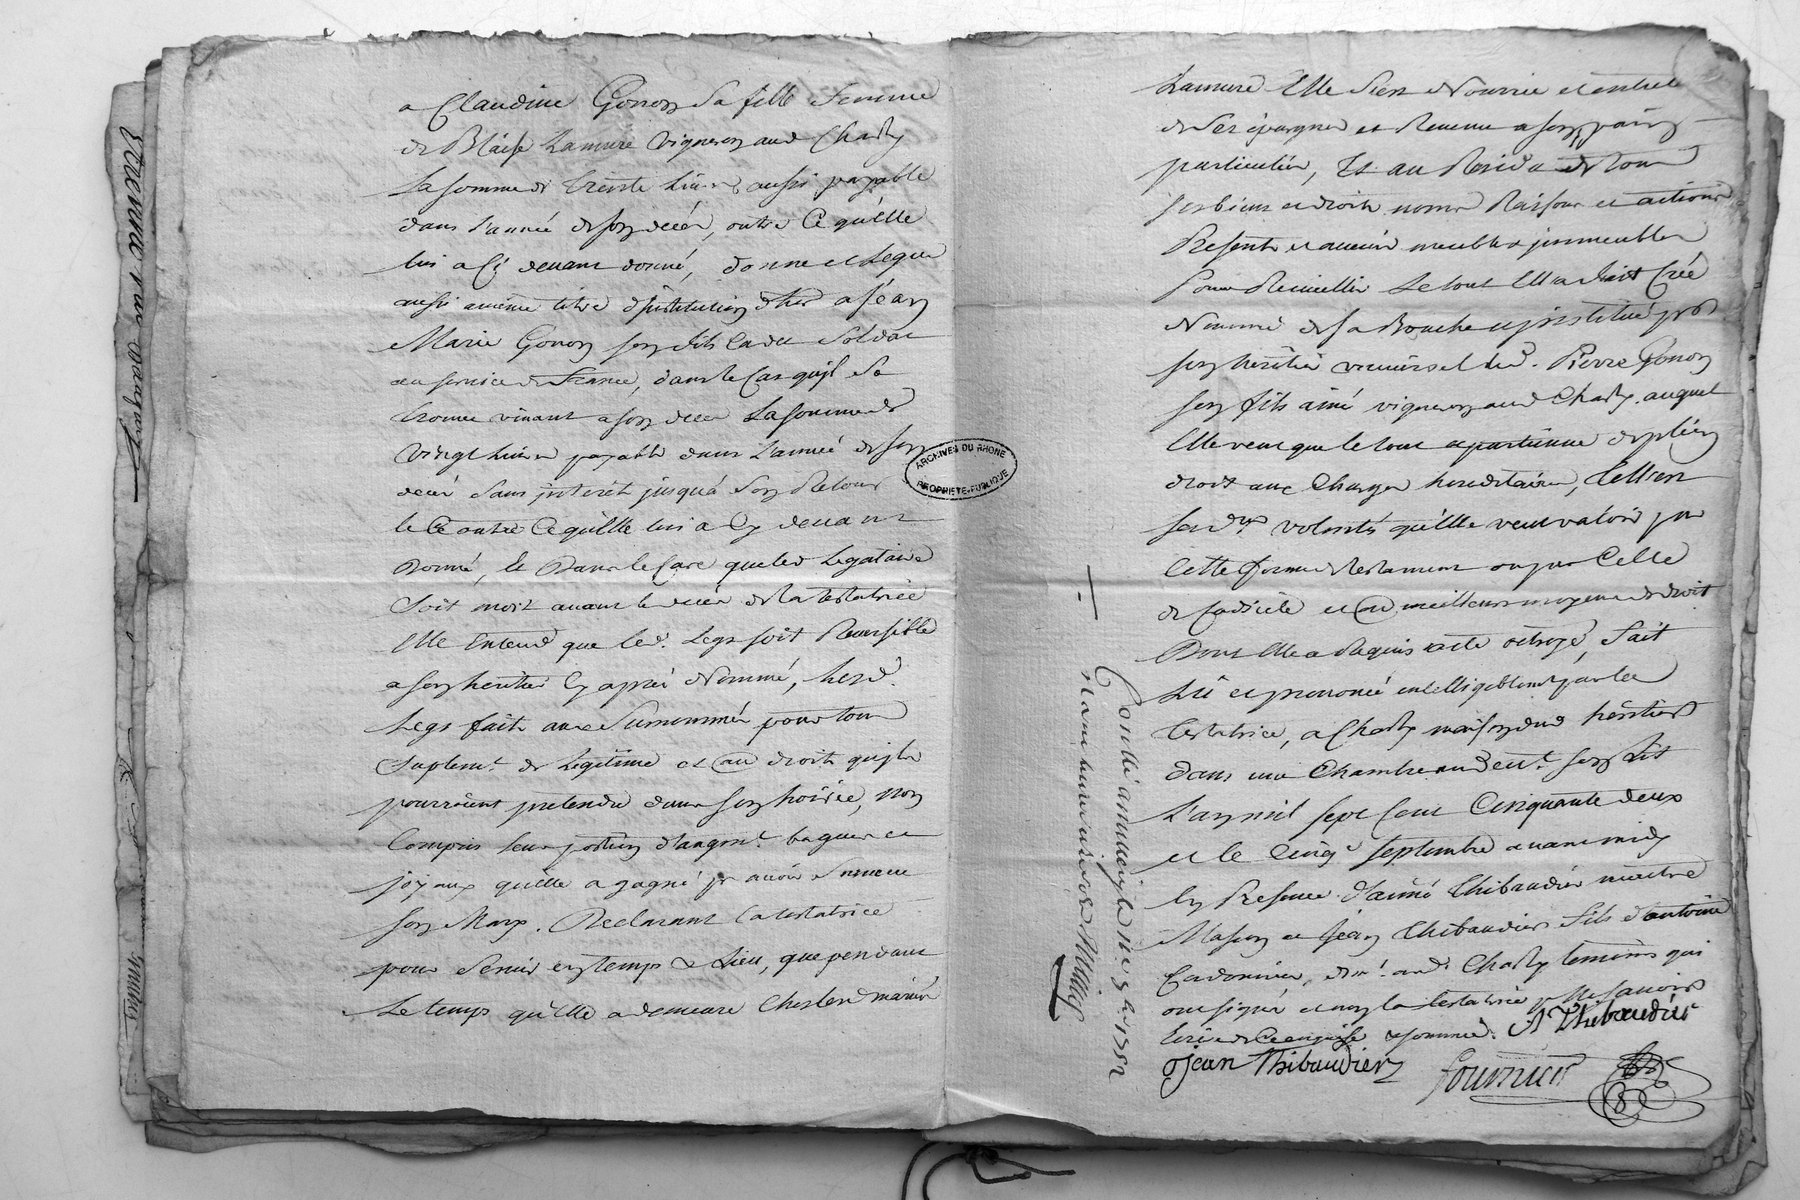 a Claudine Gonon sa fille femme
de Blaise Lamure vigneron aud Charly
la somme de trente livres aussi payable
dans l'année de son decés, outre Ce qu'elle
lui a Cy devant donné, donne et Legue
aussi au meme titre d'institution d'her a Jean
Marie Gonon son fils Cadet Soldat
au service de france, dans le Cas qu'il se
trouve vivant a son decés La somme de
vingt livres payable dans L'année de son
decés sans interêt jusqu'à son Retour
le Ce outre Ce qu'elle lui a Cy devant
Donné, Et Dans le Cas que led Legataire
soit mort avant le decés de la testatrice
Elle Entend que led. Legs soit Reversible
a son heritier Cy aprés Nommé, lesd.
Legs fait aux Surnommés pour tout
suplemt. de Legitime et au droit qu'ils
pourroient pretendre dans son hoirie, non
Compris leur portion d'augmt. bagues et
joyaux qu'elle a gagné pr avoir survecu
son Mary. Declarant la testatrice
pour servir en temps & Lieu, que pendant
Le temps qu'elle a demeuré Chés led mariés
Lamure Elle s'est Nourrie et entretenue
de ses épargnes et Revenu a son
particulier, Et au Residu de tous
ses biens et droits noms Raisons et actions
Presents et avenir meubles & immeubles
pour Recueillir Le tout Elle a fait Créé
Nommé de sa Bouche et institué pr
son heritier universel led. Pierre Gonon
son fils ainé vigneron aud Charly. auquel
Elle veut que le tout apartienne de plein
droit aux Charges hereditaires, telles sont
ses dres volontés qu'elle veut valoir par
Cette forme de testament ou par Celle
de Codicile et au meilleurs moyens de droit
Dont Elle a Requis acte octroyé, fait
Lû et prononcé intelligiblement par lad
testatrice, a Charly maison dud heritier
dans une Chambre au devt. son Lit
L'an mil sept Cent Cinquante deux
et le Cinqe septembre avant midy
En Presence d'aimé Thibaudier maitre
Masson et Jean Thibaudier fils d'antoine
Cordonnier, demt. aud. Charly temoins qui
ont signé et non la testatrice pr ne savoir
Ecrire de Ce enquise & sommée. A Thibaudier
Jean Thibaudier
fournier
Controllé a le 11e 7bre 1752
ARCHIVES DU RHONE
PROPRIETE PUBLIQUE